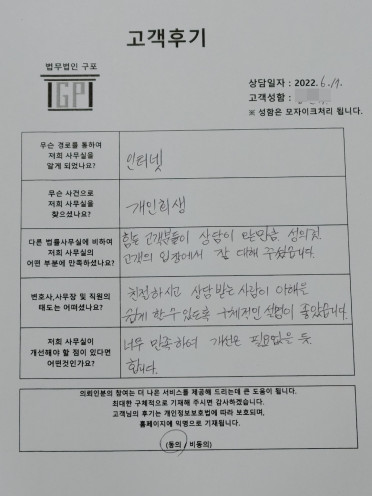 고객후기
법무법인 구포
GP
상담일자 : 2022. 6. 17.
고객성함 :
※ 성함은 모자이크처리 됩니다.
무슨 경로를 통하여
저희 사무실을
알게 되었나요?
인터넷
무슨 사건으로
저희 사무실을
찾으셨나요?
개인회생
다른 법률사무실에 비하여
저희 사무실의
어떤 부분에 만족하셨나요?
힘든 고객분들이 상담이 많은만큼 성의껏
고객의 입장에서 잘 대해 주셨습니다.
변호사,사무장 및 직원의
태도는 어떠셨나요?
친절하시고 상담받는 사람이
쉽게 할 수 있도록 구체적인 설명이 좋았습니다.
저희 사무실이
개선해야 할 점이 있다면
어떤것인가요?
너무 만족하여 개선은 필요없을 듯
합니다.
의뢰인분의 참여는 더 나은 서비스를 제공해 드리는데 큰 도움이 됩니다.
최대한 구체적으로 기재해 주시면 감사하겠습니다.
고객님의 후기는 개인정보보호법에 따라 보호되며,
홈페이지에 익명으로 기재됩니다.
(동의 / 비동의)